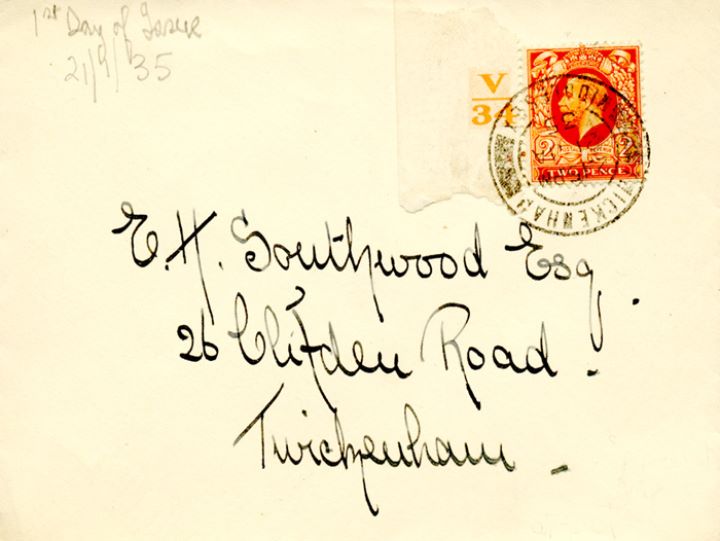 1st Day of Issue
21/1/35
V
34
2 2
TWO PENCE
TWICKENHAM
E. H. Southwood Esq.
26 Clifden Road.
Twickenham